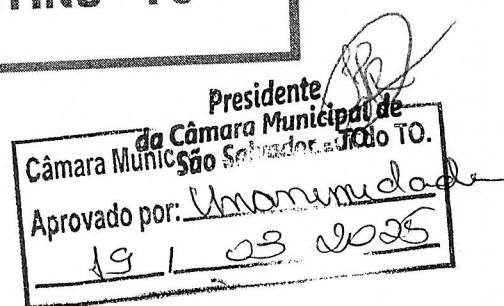 TINS - TO
Presidente
da Câmara Municipal de
São Salvador - TO
Câmara Munic do TO.
Aprovado por: Unanimidade
19 / 03 2025